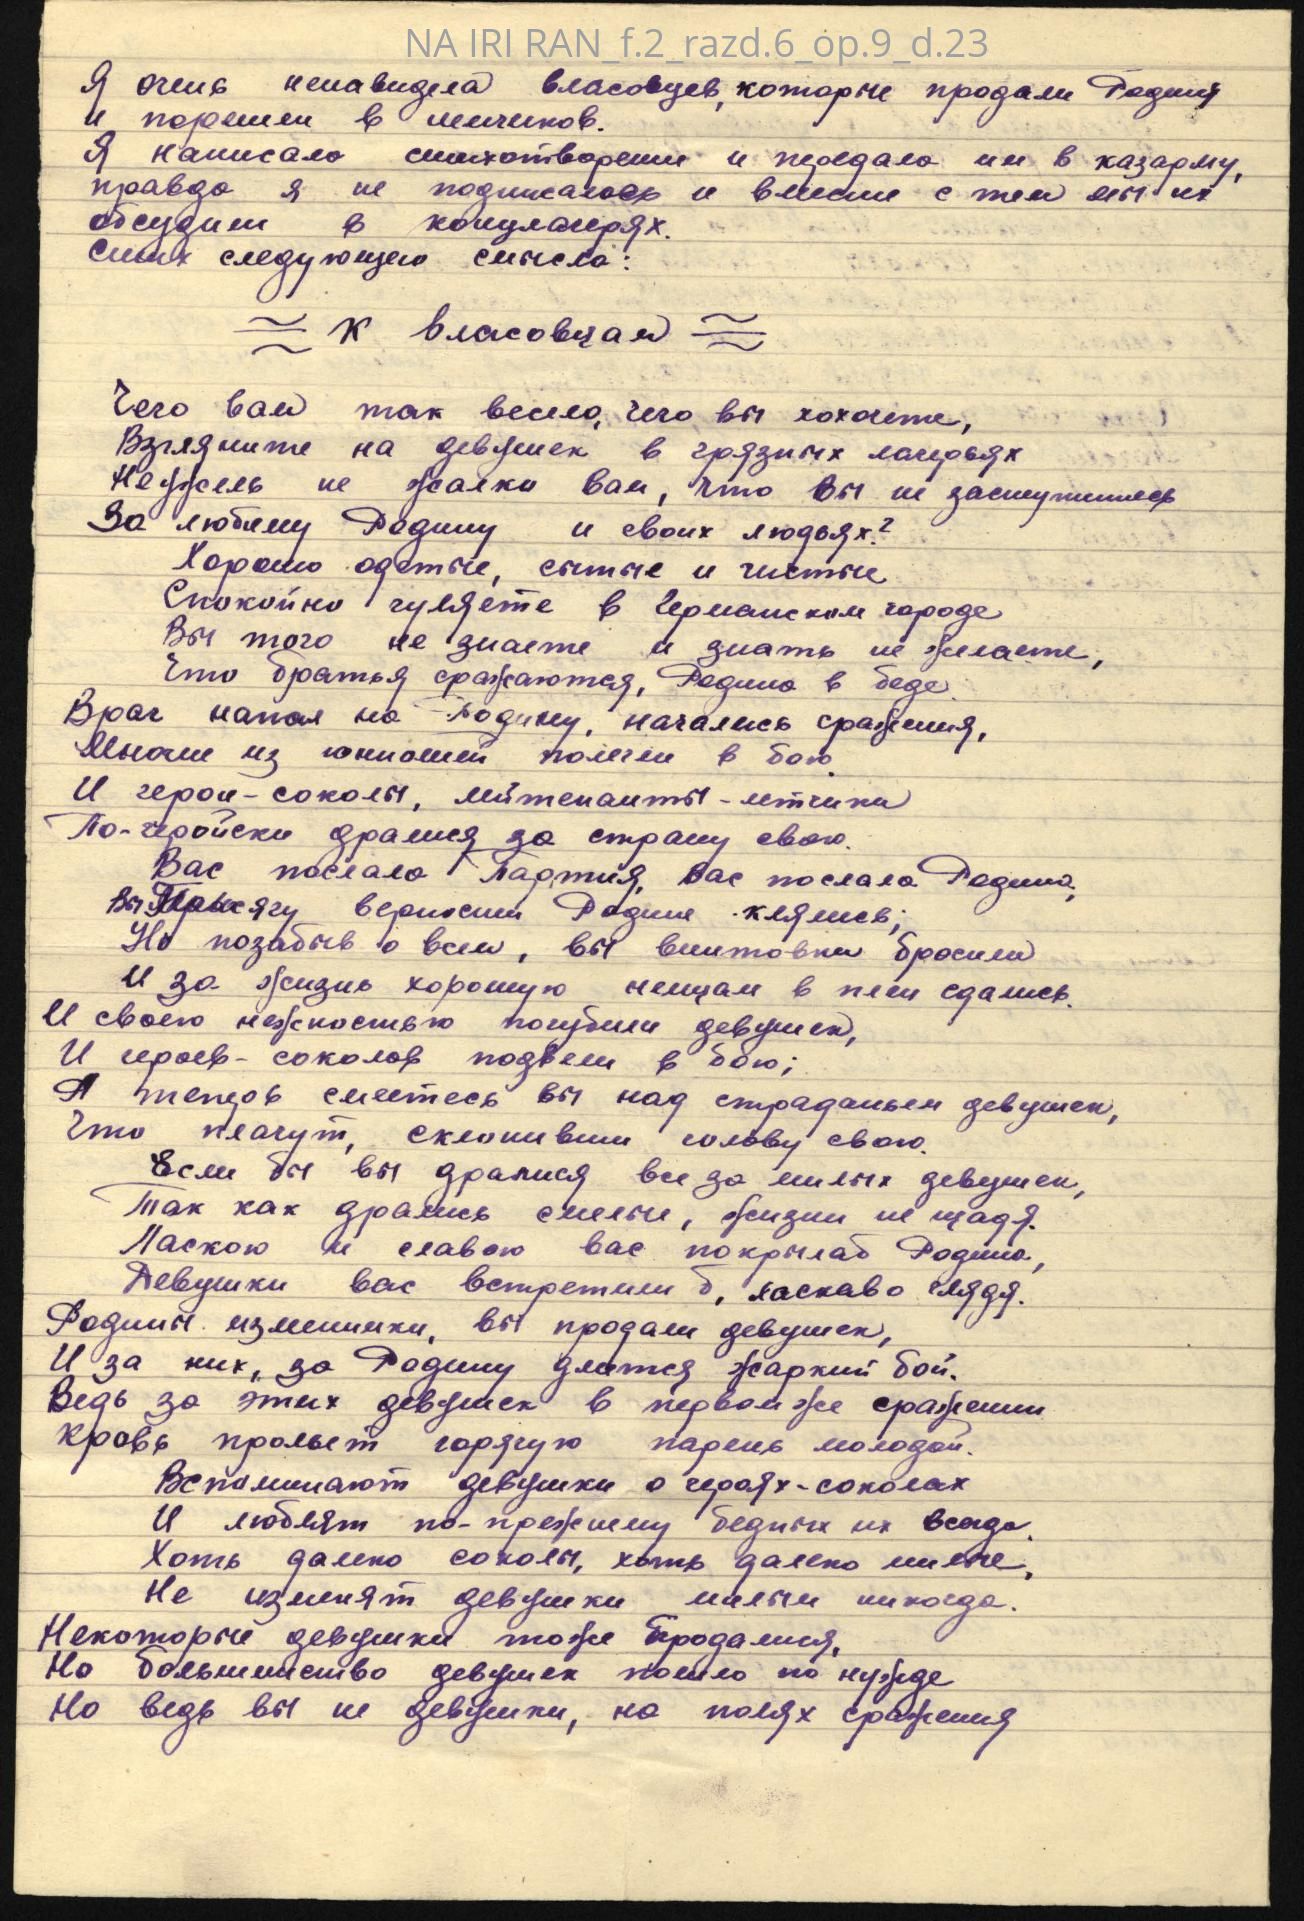 NA IRI RAN_f.2_razd.6_op.9_d.23
Я очень ненавидела власовцев, которые продали Родину
и перешли в
Я написала стихотворение и передала им в казарму,
правда я не подписалась и вместе с тем мы их
обсудили в концлагерях.
Стих следующего смысла:
К власовцам
Чего вам так весело, чего вы хохочете,
Взгляните на девушек в грязных лагерьях
Неужель не жалко вам, что вы не заступились
За любиму Родину и своих людьях?
Хорошо одетые, сытые и чистые
Спокойно гуляете в Германском городе
Вы того не знаете и знать не желаете,
Что братья сражаются, Родина в беде.
Враг напал на Родину, начались сражения,
Многие из юнношей полегли в бою.
И герои-соколы, лейтенанты-летчики
По-геройски дралися за страну свою.
Вас послала Партия, вас послала Родина,
Вы Присягу верности Родине клялись;
Но позабыв о всем, вы винтовки бросили
И за жизнь хорошую немцам в плен сдались.
И своею нежностью погубили девушек,
И героев-соколов подвели в бою;
А теперь смеетесь вы над страданьем девушек,
Что плачут, склонивши голову свою.
Если бы вы дралися все за милых девушек,
Так как дрались смелые, жизни не щадя.
Ласкою и славою вас покрыла б Родина,
Девушки вас встретили б, ласкаво глядя.
Родины изменники, вы продали девушек,
И за них, за Родину длится жаркий бой.
Ведь за этих девушек в первом же сражении
Кровь прольет горячую парень молодой.
Вспоминают девушки о героях-соколах
И любят по-прежнему бедных их всегда.
Хоть далеко соколы, хоть далеко милые,
Не изменят девушки милым никогда.
Некоторые девушки тоже продалися,
Но большинство девушек пошло по нужде
Но ведь вы не девушки, на полях сражения